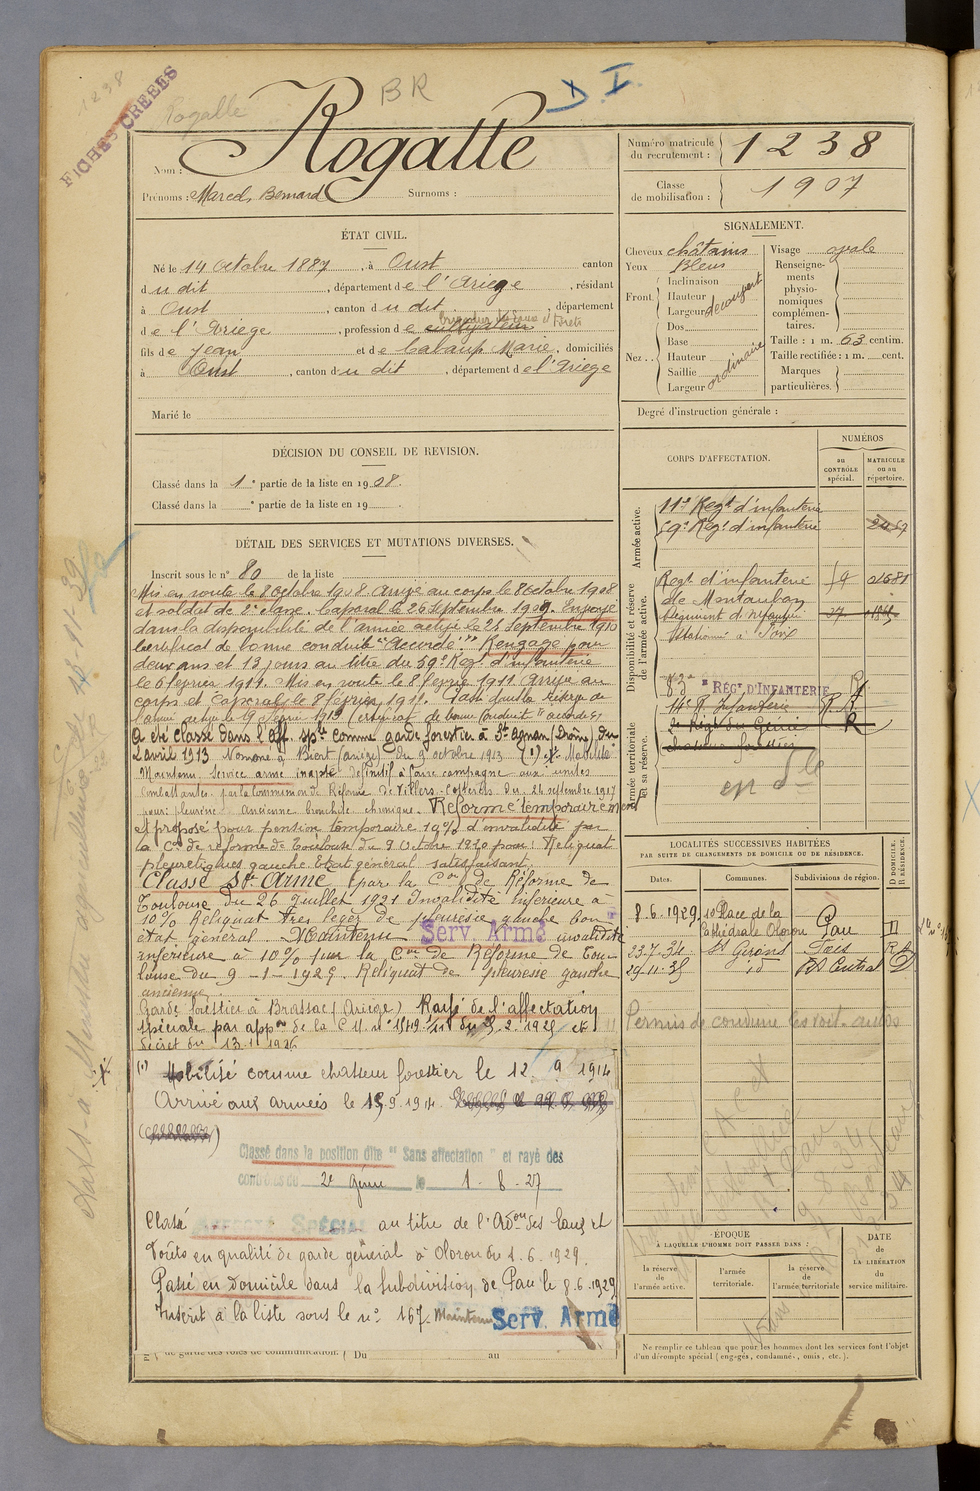 1238
FICHES CRÉÉES
Rogalle
BR
I
Nom : Rogalle
Prénoms : Marcel, Bernard Surnoms :
Numéro matricule du recrutement : 1238
Classe de mobilisation : 1907
ÉTAT CIVIL.
Né le 14 octobre 1887, à Oust canton
du dit, département de l'Ariege, résidant
à Oust, canton du dit, département
brigadier des Eaux et Forêts
de l'Ariege, profession de cultivateur
fils de Jean et de Cabaup Marie, domiciliés
à Oust, canton du dit, département de l'Ariege
Marié le
SIGNALEMENT.
Cheveux châtains
Yeux Bleus
Front Inclinaison
Hauteur
Largeur
découvert
Dos
Nez Base
Hauteur
Saillie
Largeur
ordinaire
Visage ovale
Renseignements physionomiques complémentaires.
Taille : 1 m. 63 centim.
Taille rectifiée : 1 m. cent.
Marques particulières.
Degré d'instruction générale :
DÉCISION DU CONSEIL DE REVISION.
Classé dans la 1e partie de la liste en 1908.
Classé dans la e partie de la liste en 19
DÉTAIL DES SERVICES ET MUTATIONS DIVERSES.
Inscrit sous le n° 80 de la liste
Mis en route le 8 octobre 1908. Arrivé au corps le 8 octobre 1908
et soldat de 2e classe. Caporal le 26 septembre 1909. Envoyé
dans la disponibilité de l'armée active le 25 Septembre 1910
Certificat de bonne conduite "Accordé". Rengagé pour
deux ans et 13 jours au titre du 59e Regt d'infanterie
le 6 février 1911. Mis en route le 8 février 1911. Arrivé au
corps et Caporal le 8 février 1911. Passé dans la réserve de
l'armée active le 19 février 1913. Certificat de bonne conduite "accordé"
A été classé dans l'Aff. sple comme garde forestier à St Agnan (Drôme), du
2 avril 1913 Nommé à Biert (Ariège) du 9 octobre 1913 (1)
Maintenu service armé inapte définitif à faire campagne aux unités
combattantes par la Commission de Réforme de Villers-Cotterêts du 26 septembre 1917
pour : pleurite ancienne bronchite chronique. Réformé temporairement
et proposé pour pension temporaire 10% d'invalidité par
la Con de réforme de Toulouse du 9 Octobre 1920 pour : Reliquat
pleurétiques gauche. Etat général satisfaisant.
Classé Sce Armé par la Con de Réforme de
Toulouse du 26 Juillet 1921 Invalidité inférieure à
10% Reliquat très léger de pleurésie gauche bon
état général. Maintenu Serv. Armé invalidité
inférieure à 10% par la Con de Réforme de Toulouse
du 9-1-1925. Reliquat de pleuresie gauche
ancienne.
Garde forestier à Brassac (Ariège) Rayé de l'affectation
spéciale par appon de la C.M. n° 1549 2. 1925 et
décret du 13.1.1926
(1) Mobilisé comme chasseur forestier le 12. 9 1914
Arrivé aux armées le 15.9.1914
Classé dans la position dite "Sans affectation" et rayé des
contrôles du 2e Génie le 1-8-27
Classé AFFECTÉ SPÉCIAL au titre de l'Adon des Eaux et
Forêts en qualité de garde général à Oloron du 1.6.1929.
Passé en domicile dans la subdivision de Pau le 8.6.1929
Inscrit à la liste sous le n° 167. Maintenu Serv. Armé
de garde des voies de communication. Du au
CORPS D'AFFECTATION.
NUMÉROS
au CONTRÔLE spécial.
MATRICULE ou au répertoire.
Armée active.
11e Regt d'infanterie
59e Regt d'infanterie
Disponibilité et réserve de l'armée active.
Regt d'infanterie
de Montauban
Régiment d'Infanterie
stationné à Foix
83e RÉGt D'INFANTERIE
14e R. Infanterie
Armée territoriale et sa réserve.
2e Régt du Génie R
chasseur forestier
LOCALITÉS SUCCESSIVES HABITÉES
PAR SUITE DE CHANGEMENTS DE DOMICILE OU DE RÉSIDENCE.
Dates. Communes. Subdivisions de région. D DOMICILE, R RÉSIDENCE.
8.6.1929 10 Place de la Cathédrale Oloron Pau D
23.7.34 St Girons Foix R
29.11.35 id D
Permis de conduire les voit. autos
ÉPOQUE
À LAQUELLE L'HOMME DOIT PASSER DANS :
la réserve de l'armée active.
l'armée territoriale.
la réserve de l'armée territoriale
DATE de LA LIBÉRATION du service militaire.
Ne remplir ce tableau que pour les hommes dont les services font l'objet
d'un décompte spécial (engagés, condamnés, omis, etc.).